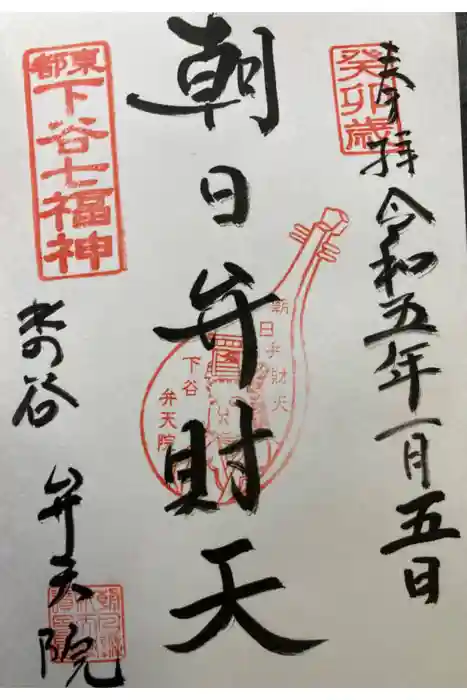 奉拝 令和五年一月五日
癸卯歳
朝日弁財天
朝日弁財天
下谷
弁天院
東都
下谷七福神
弁天院